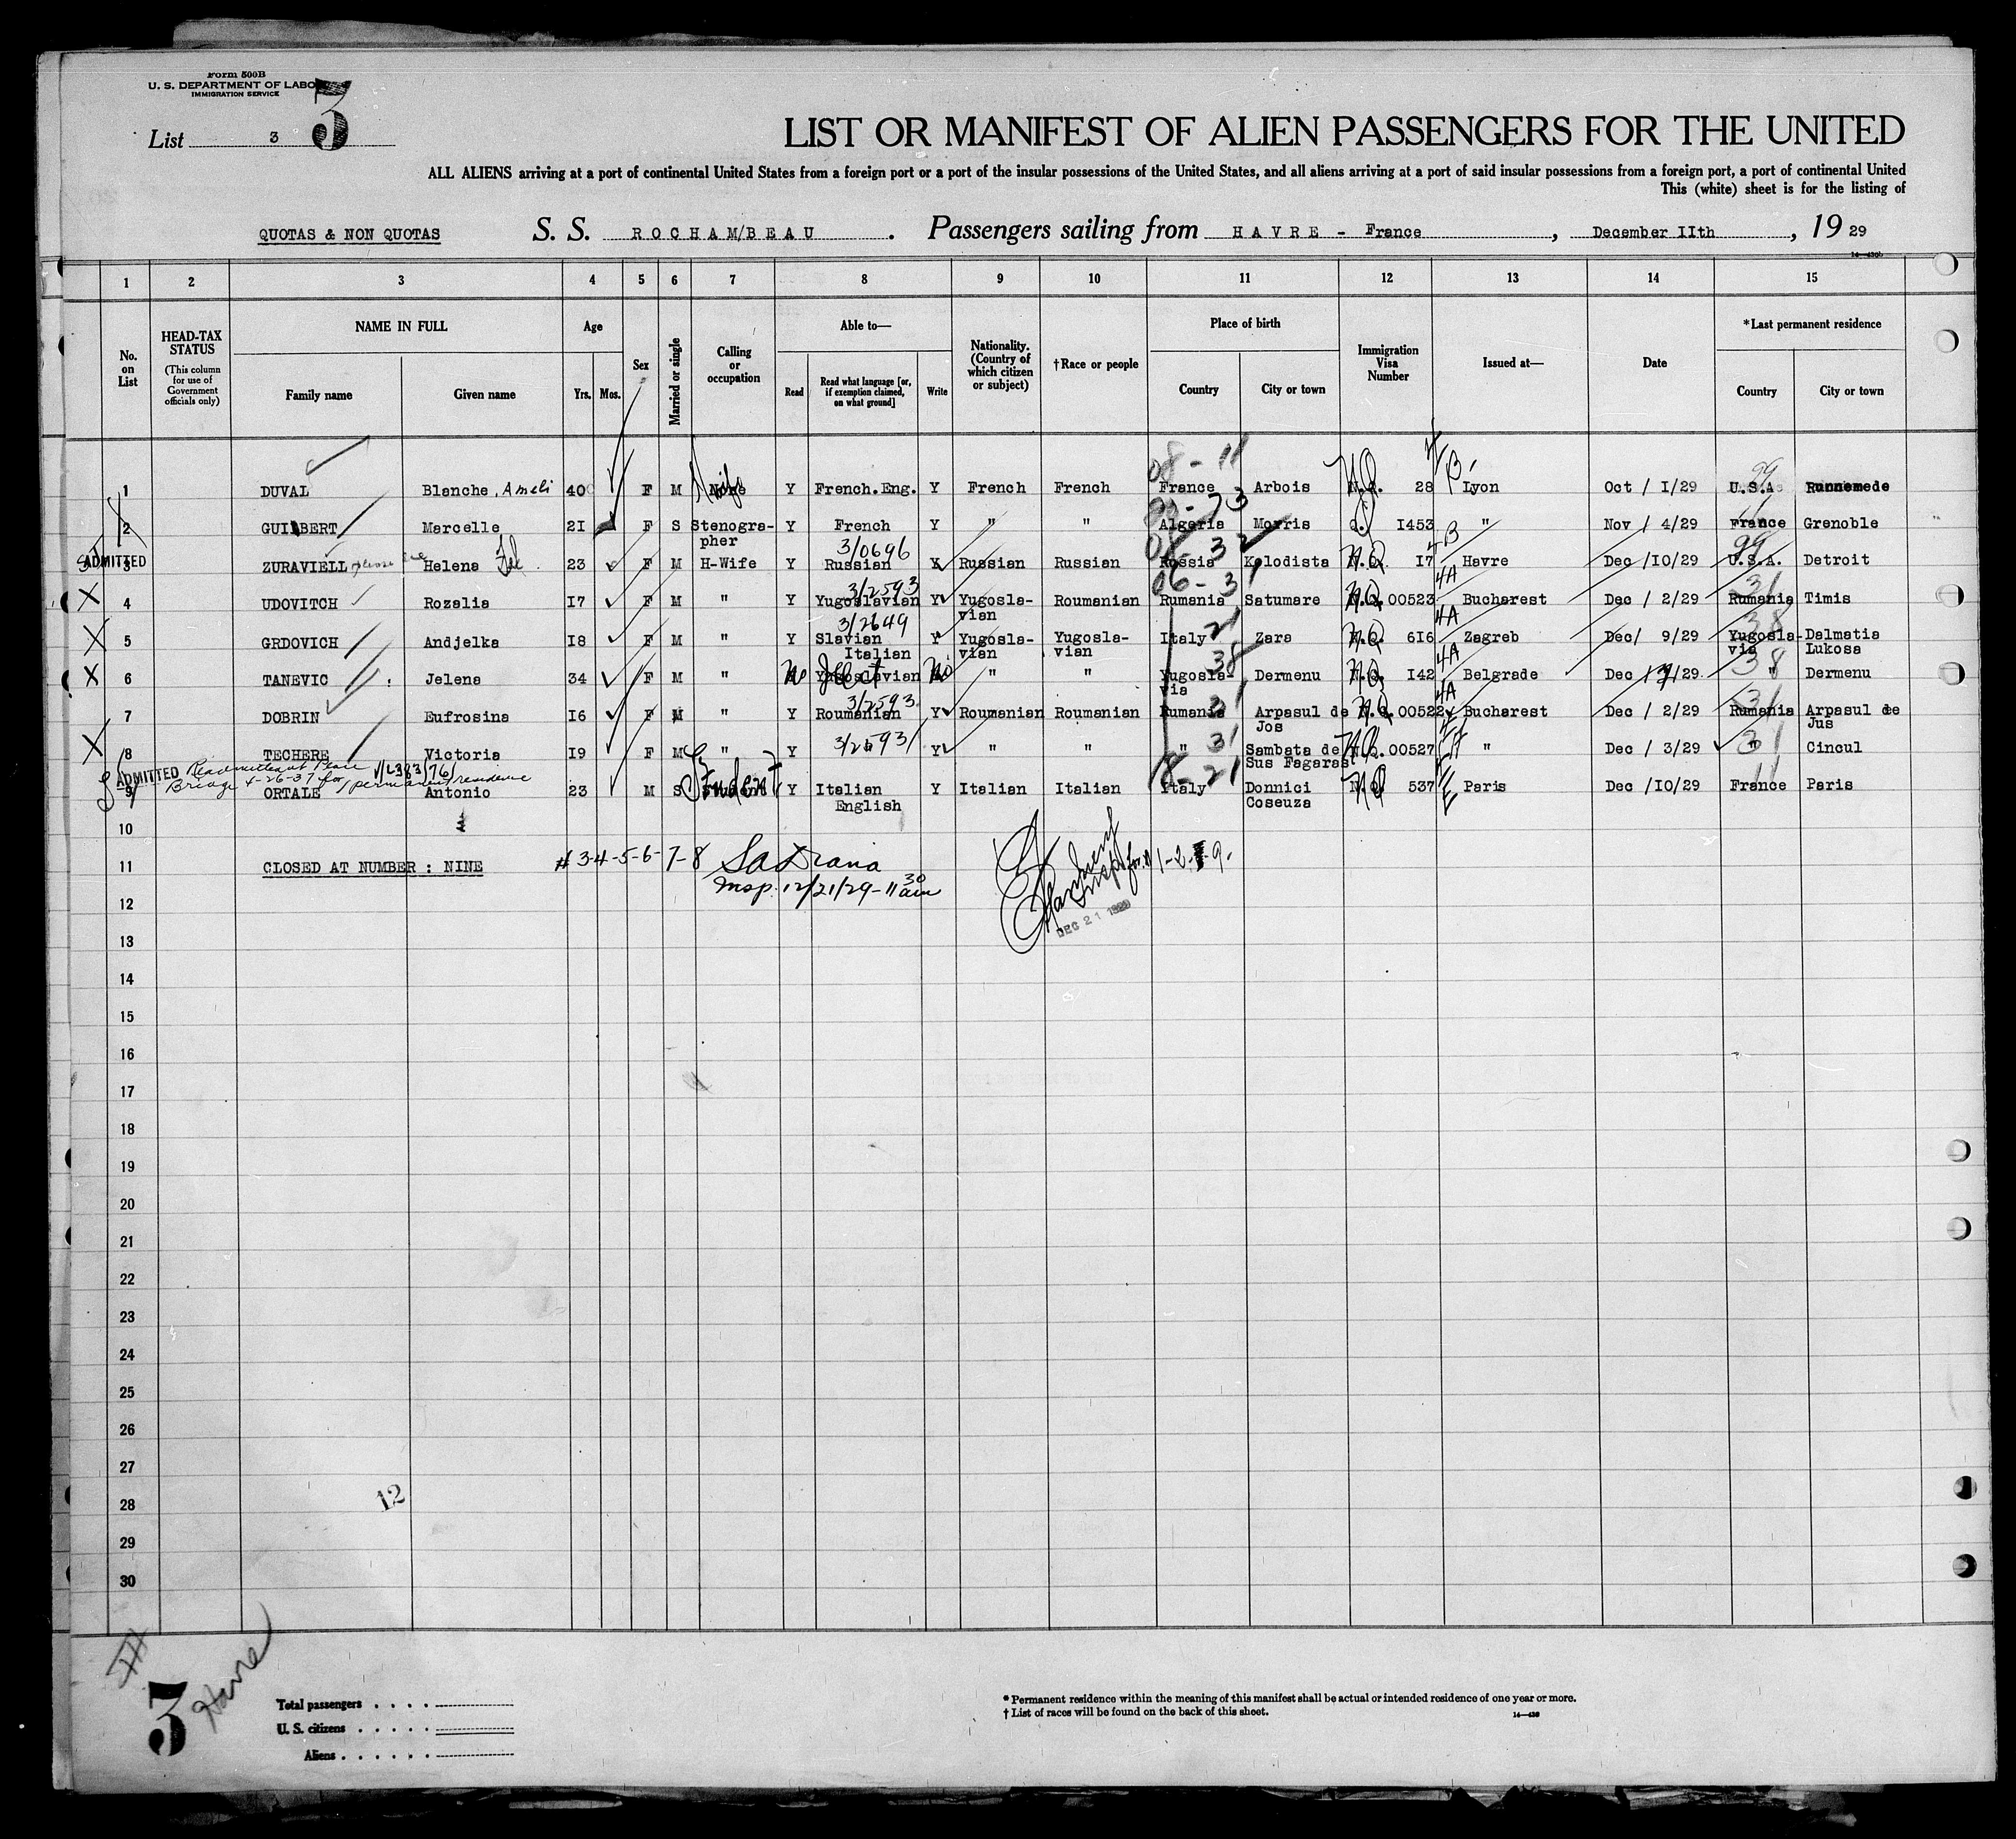 Form 500B
U. S. DEPARTMENT OF LABOR
IMMIGRATION SERVICE
3
List 3
LIST OR MANIFEST OF ALIEN PASSENGERS FOR THE UNITED
ALL ALIENS arriving at a port of continental United States from a foreign port or a port of the insular possessions of the United States, and all aliens arriving at a port of said insular possessions from a foreign port, a port of continental United
This (white) sheet is for the listing of
QUOTAS & NON QUOTAS S. S. ROCHAM/BEAU . Passengers sailing from HAVRE - France , December IIth , 19 29
1 2 3 4 5 6 7 8 9 10 11 12 13 14 15
No. on List
HEAD-TAX STATUS (This column for use of Government officials only)
NAME IN FULL Family name Given name
Age Yrs. Mos.
Sex
Married or single
Calling or occupation
Able to— Read Read what language [or, if exemption claimed, on what ground] Write
Nationality. (Country of which citizen or subject)
†Race or people
Place of birth Country City or town
Immigration Visa Number
Issued at—
Date
*Last permanent residence Country City or town
08-11
1 DUVAL Blanche, Ameli 40 F M Wife Y French.Eng. Y French French France Arbois N.Q. 28 Lyon Oct / I/29 U.S.A Runnemede
2 GUILBERT Marcelle 2I F S Stenogra-pher Y French Y " " Algeria Morris Q. I453 " Nov / 4/29 France Grenoble
ADMITTED
3/0696
3 ZURAVIELL Helena 23 F M H-Wife Y Russian Y Russian Russian Russia Kolodista N.Q. I7 Havre Dec /IO/29 U.S.A. Detroit
3/2593
4 UDOVITCH Rozalia I7 F M " Y Yugoslavian Y Yugosla-vian Roumanian Rumania Satumare N.Q. 00523 4A Bucharest Dec / 2/29 Rumania Timis
3/2649
5 GRDOVICH Andjelka I8 F M " Y Slavian Italian Y Yugosla-vian Yugosla-vian Italy Zara N.Q. 6I6 4A Zagreb Dec/ 9/29 Yugosla-via Dalmatia Lukosa
6 TANEVIC Jelena 34 F M " No Yugoslavian No " " Yugosla-via Dermenu N.Q. I42 4A Belgrade Dec / 7/29 " Dermenu
3/2593
7 DOBRIN Eufrosina I6 F M " Y Roumanian Y Roumanian Roumanian Rumania Arpasul de Jos N.Q. 00522 4A Bucharest Dec / 2/29 Rumania Arpasul de Jus
8 TECHERE Victoria I9 F M " Y 3/2593 Y " " " Sambata de Sus Fagaras N.Q. 00527 " Dec / 3/29 " Cincul
ADMITTED Readmitted at Peace
Bridge 4-26-37 for permanent residence
9 ORTALE Antonio 23 M S Student Y Italian English Y Italian Italian Italy Donnici Coseuza N.Q. 537 Paris Dec /IO/29 France Paris
10
11 CLOSED AT NUMBER : NINE #3-4-5-6-7-8
Insp. 12/21/29-11 30 am
DEC 21 1929
12
13
14
15
16
17
18
19
20
21
22
23
24
25
26
27
28
12
29
30
3
Havre
Total passengers
U. S. citizens
Aliens
* Permanent residence within the meaning of this manifest shall be actual or intended residence of one year or more.
† List of races will be found on the back of this sheet.